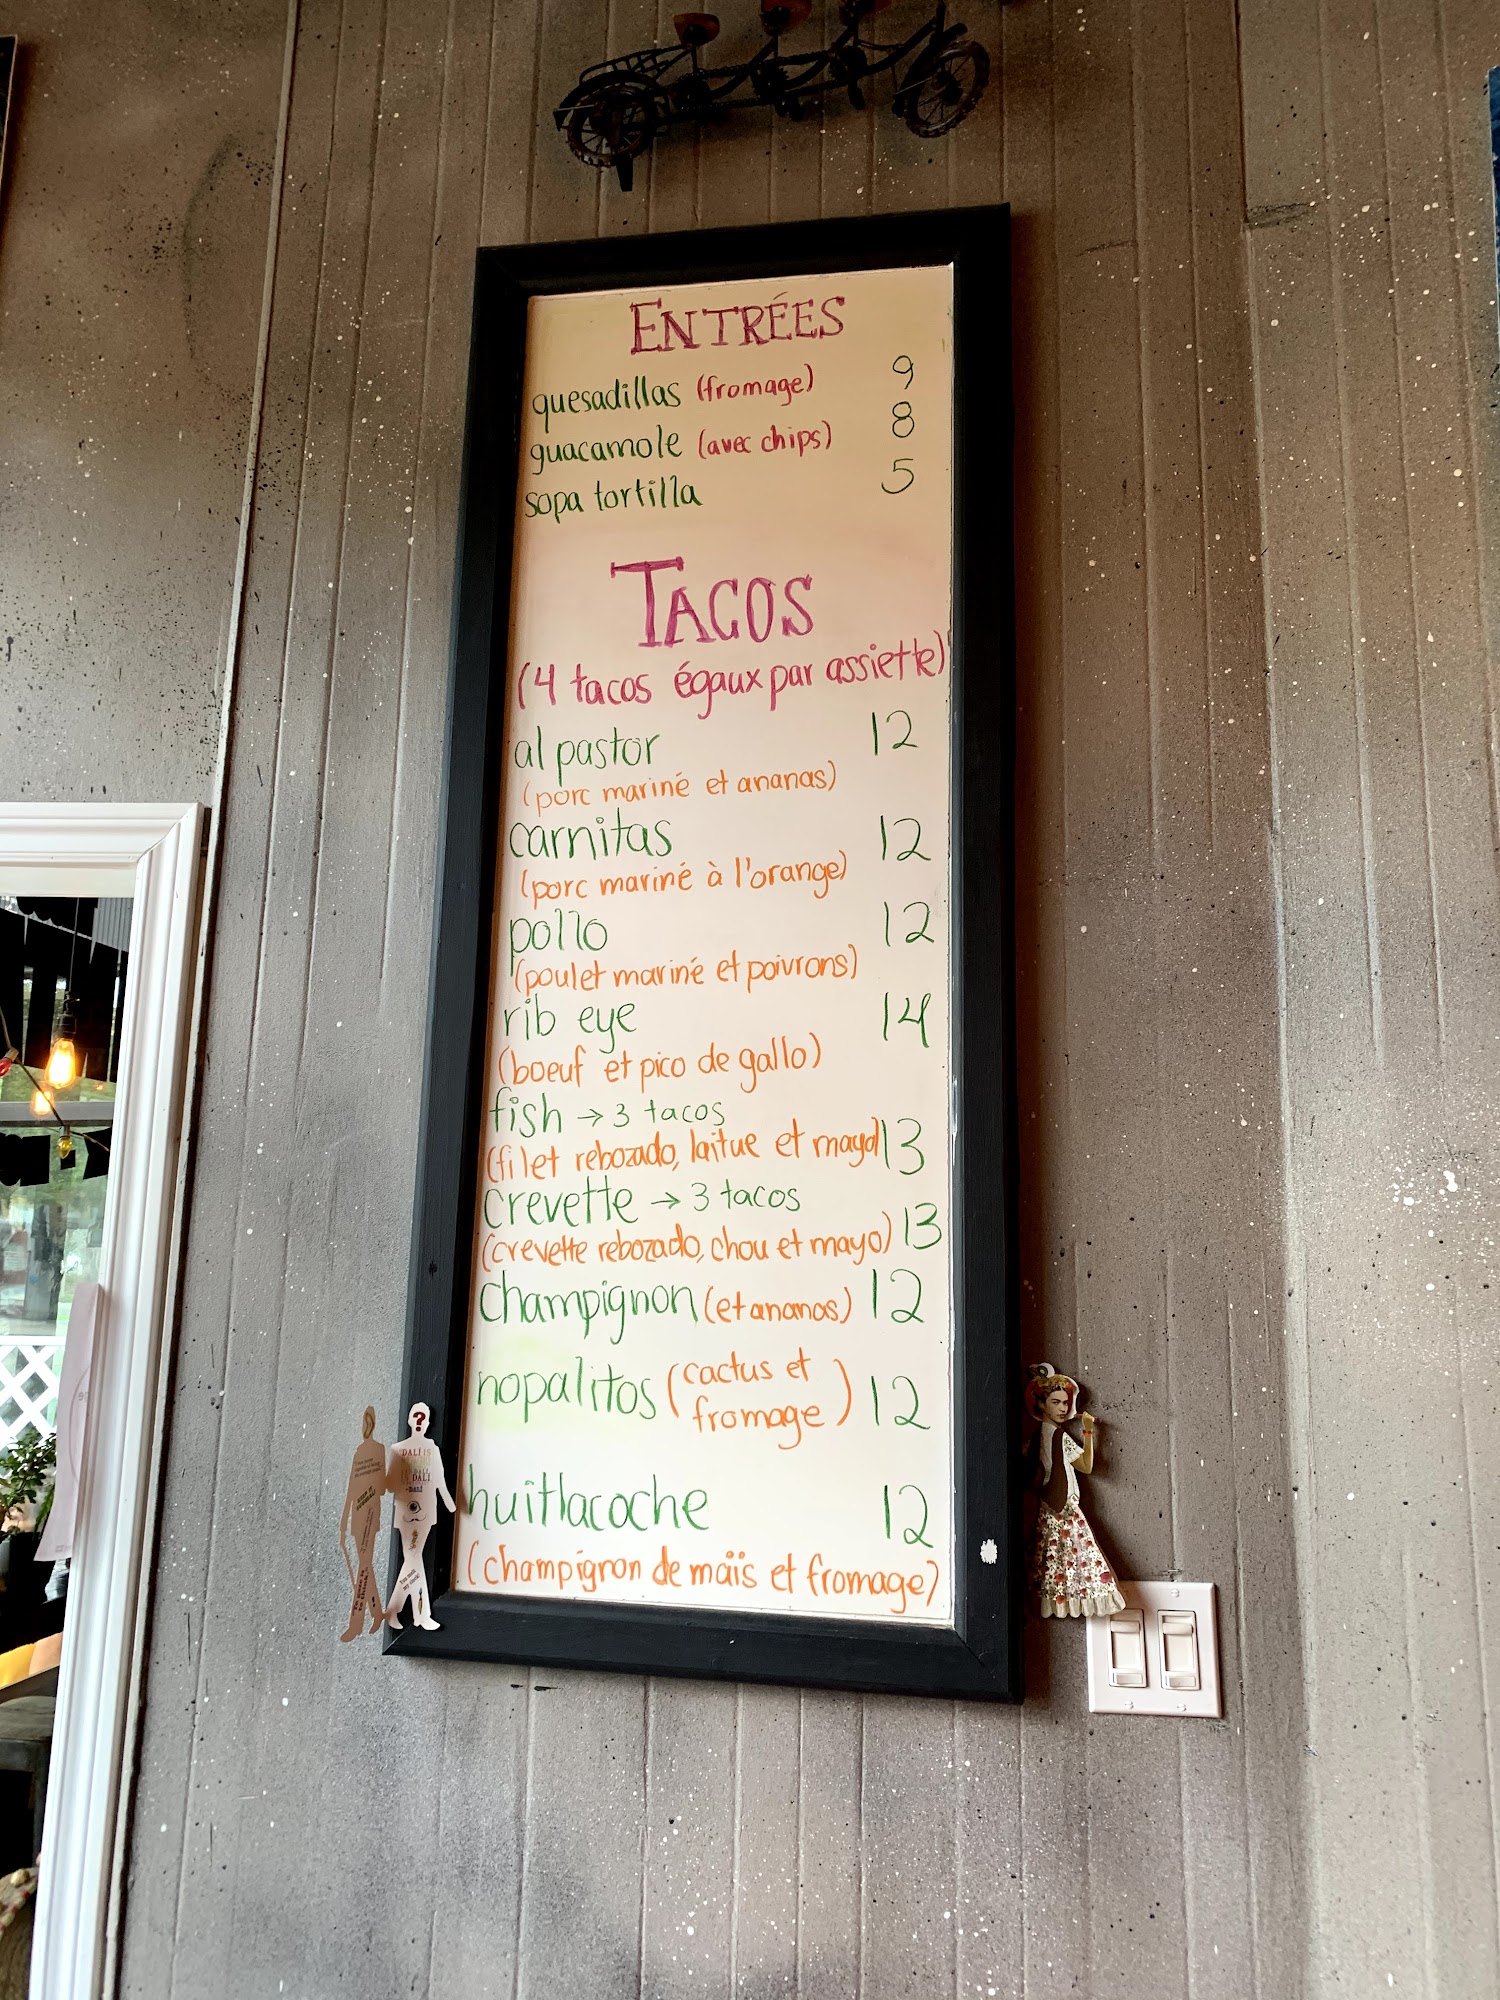 ENTRÉES
quesadillas (fromage) 9
guacamole (avec chips) 8
sopa tortilla 5
TACOS
(4 tacos égaux par assiette)
al pastor 12
(porc mariné et ananas)
carnitas 12
(porc mariné à l'orange)
pollo 12
(poulet mariné et poivrons)
rib eye 14
(boeuf et pico de gallo)
fish → 3 tacos
(filet rebozado, laitue et mayo) 13
crevette → 3 tacos
(crevette rebozado, chou et mayo) 13
champignon (et ananas) 12
nopalitos (cactus et
fromage) 12
huitlacoche 12
(champignon de maïs et fromage)
?
DALÍ IS
DALÍ